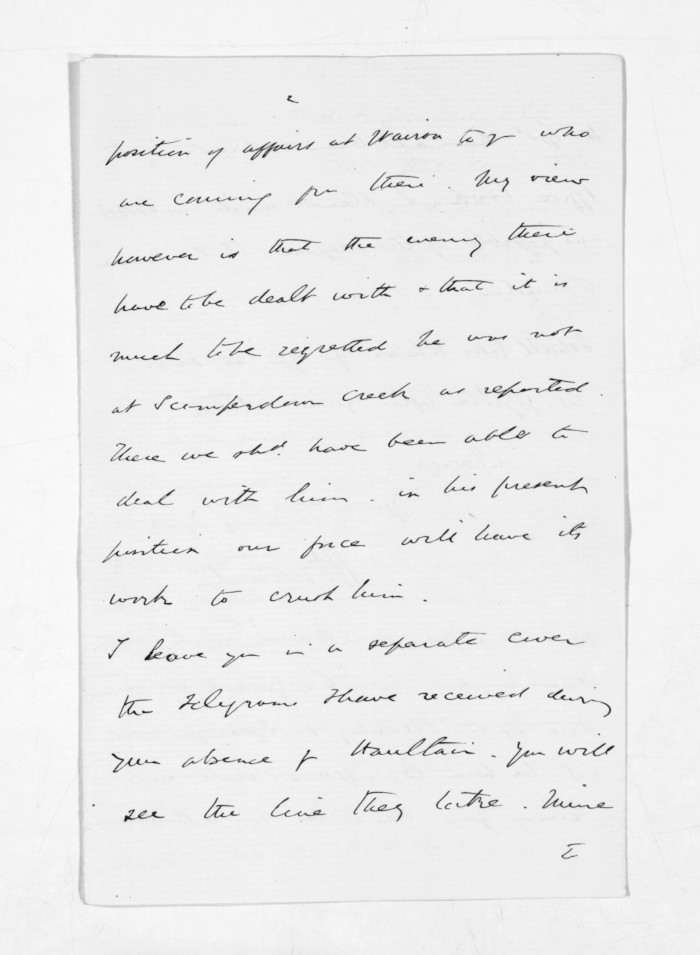 2
position of affairs at Wairoa to you who
are coming from there. My view
however is that the enemy there
have to be dealt with & that it is
much to be regretted he was not
at Scamperdown Creek as reported.
There we shd. have been able to
deal with him. in his present
position our force will have its
work to crush him.
I leave you in a separate cover
the telegrams I have received during
your absence Haultain. You will
see the line they take. Mine
I